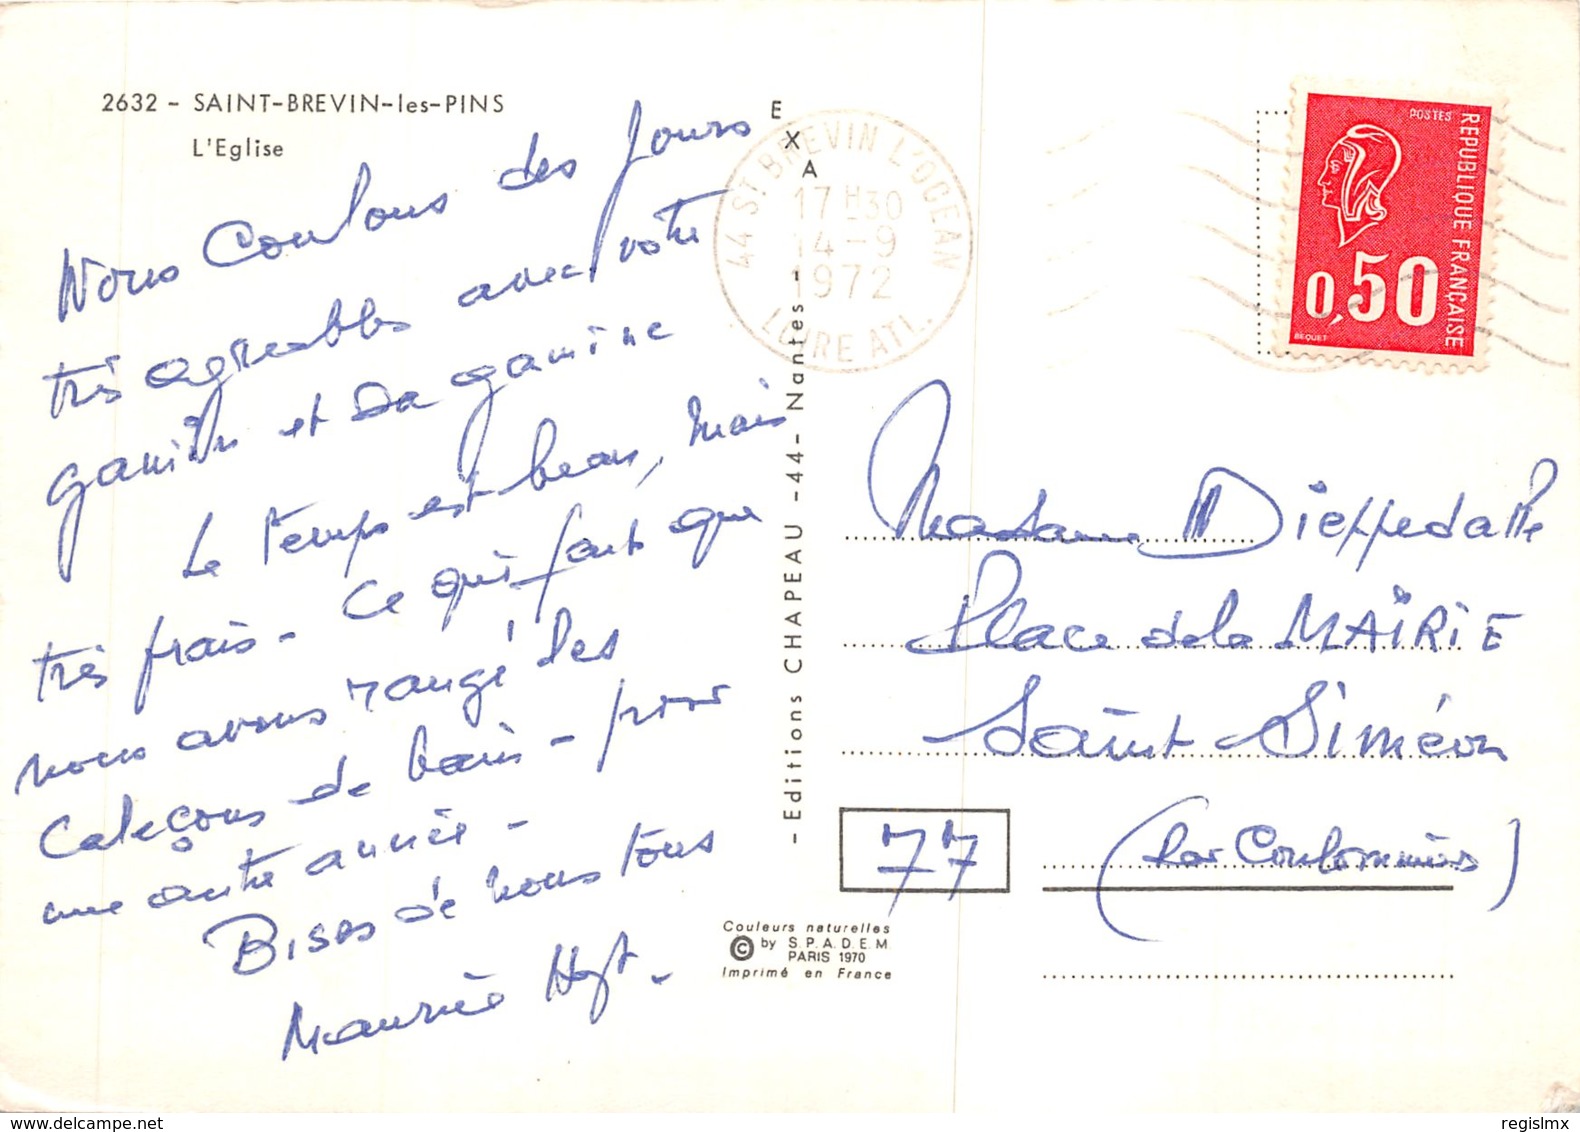 2632 - SAINT-BREVIN-les-PINS
L'Eglise
Nous Coulons des Jours
très agréables avec votre
gamin et sa gamine
Le temps est beau, mais
très frais - Ce qui fait que
nous avons rangé les
Caleçons de bain - pour
une autre année -
Bises de nous tous
Maurice
E
X
A
- Editions CHAPEAU -44- Nantes -
44 ST BREVIN L'OCEAN
17 H30
14-9
1972
LOIRE ATL.
POSTES
REPUBLIQUE FRANÇAISE
0,50
BEQUET
Madame Dieppedalle
Place de la MAÏRIE
Saint Siméon
77
(par Coulommiers)
Couleurs naturelles
© by S.P.A.D.E.M
PARIS 1970
Imprimé en France
regislmx